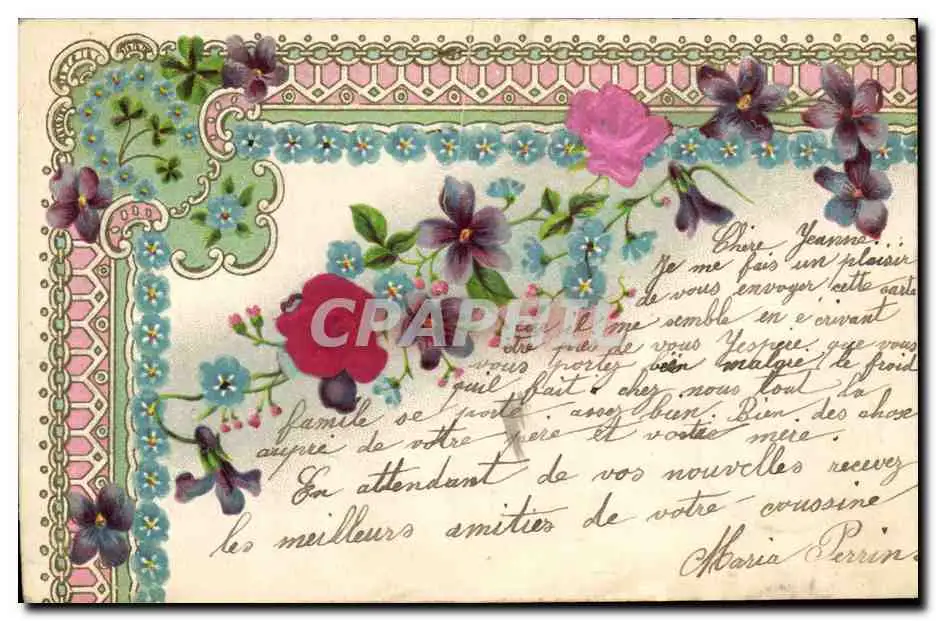 Chère Jeanne...
Je me fais un plaisir
de vous envoyer cette carte
car il me semble en ecrivant
être près de vous J'espere que vous
vous portez bien malgre le froid
quil fait. chez nous tout la
famille se porte assez bien. Bien des chose
aupre de votre pere et votre mère.
En attendant de vos nouvelles recevez
les meilleurs amitiés de votre coussine
Maria Perrin.
CPAPHIL